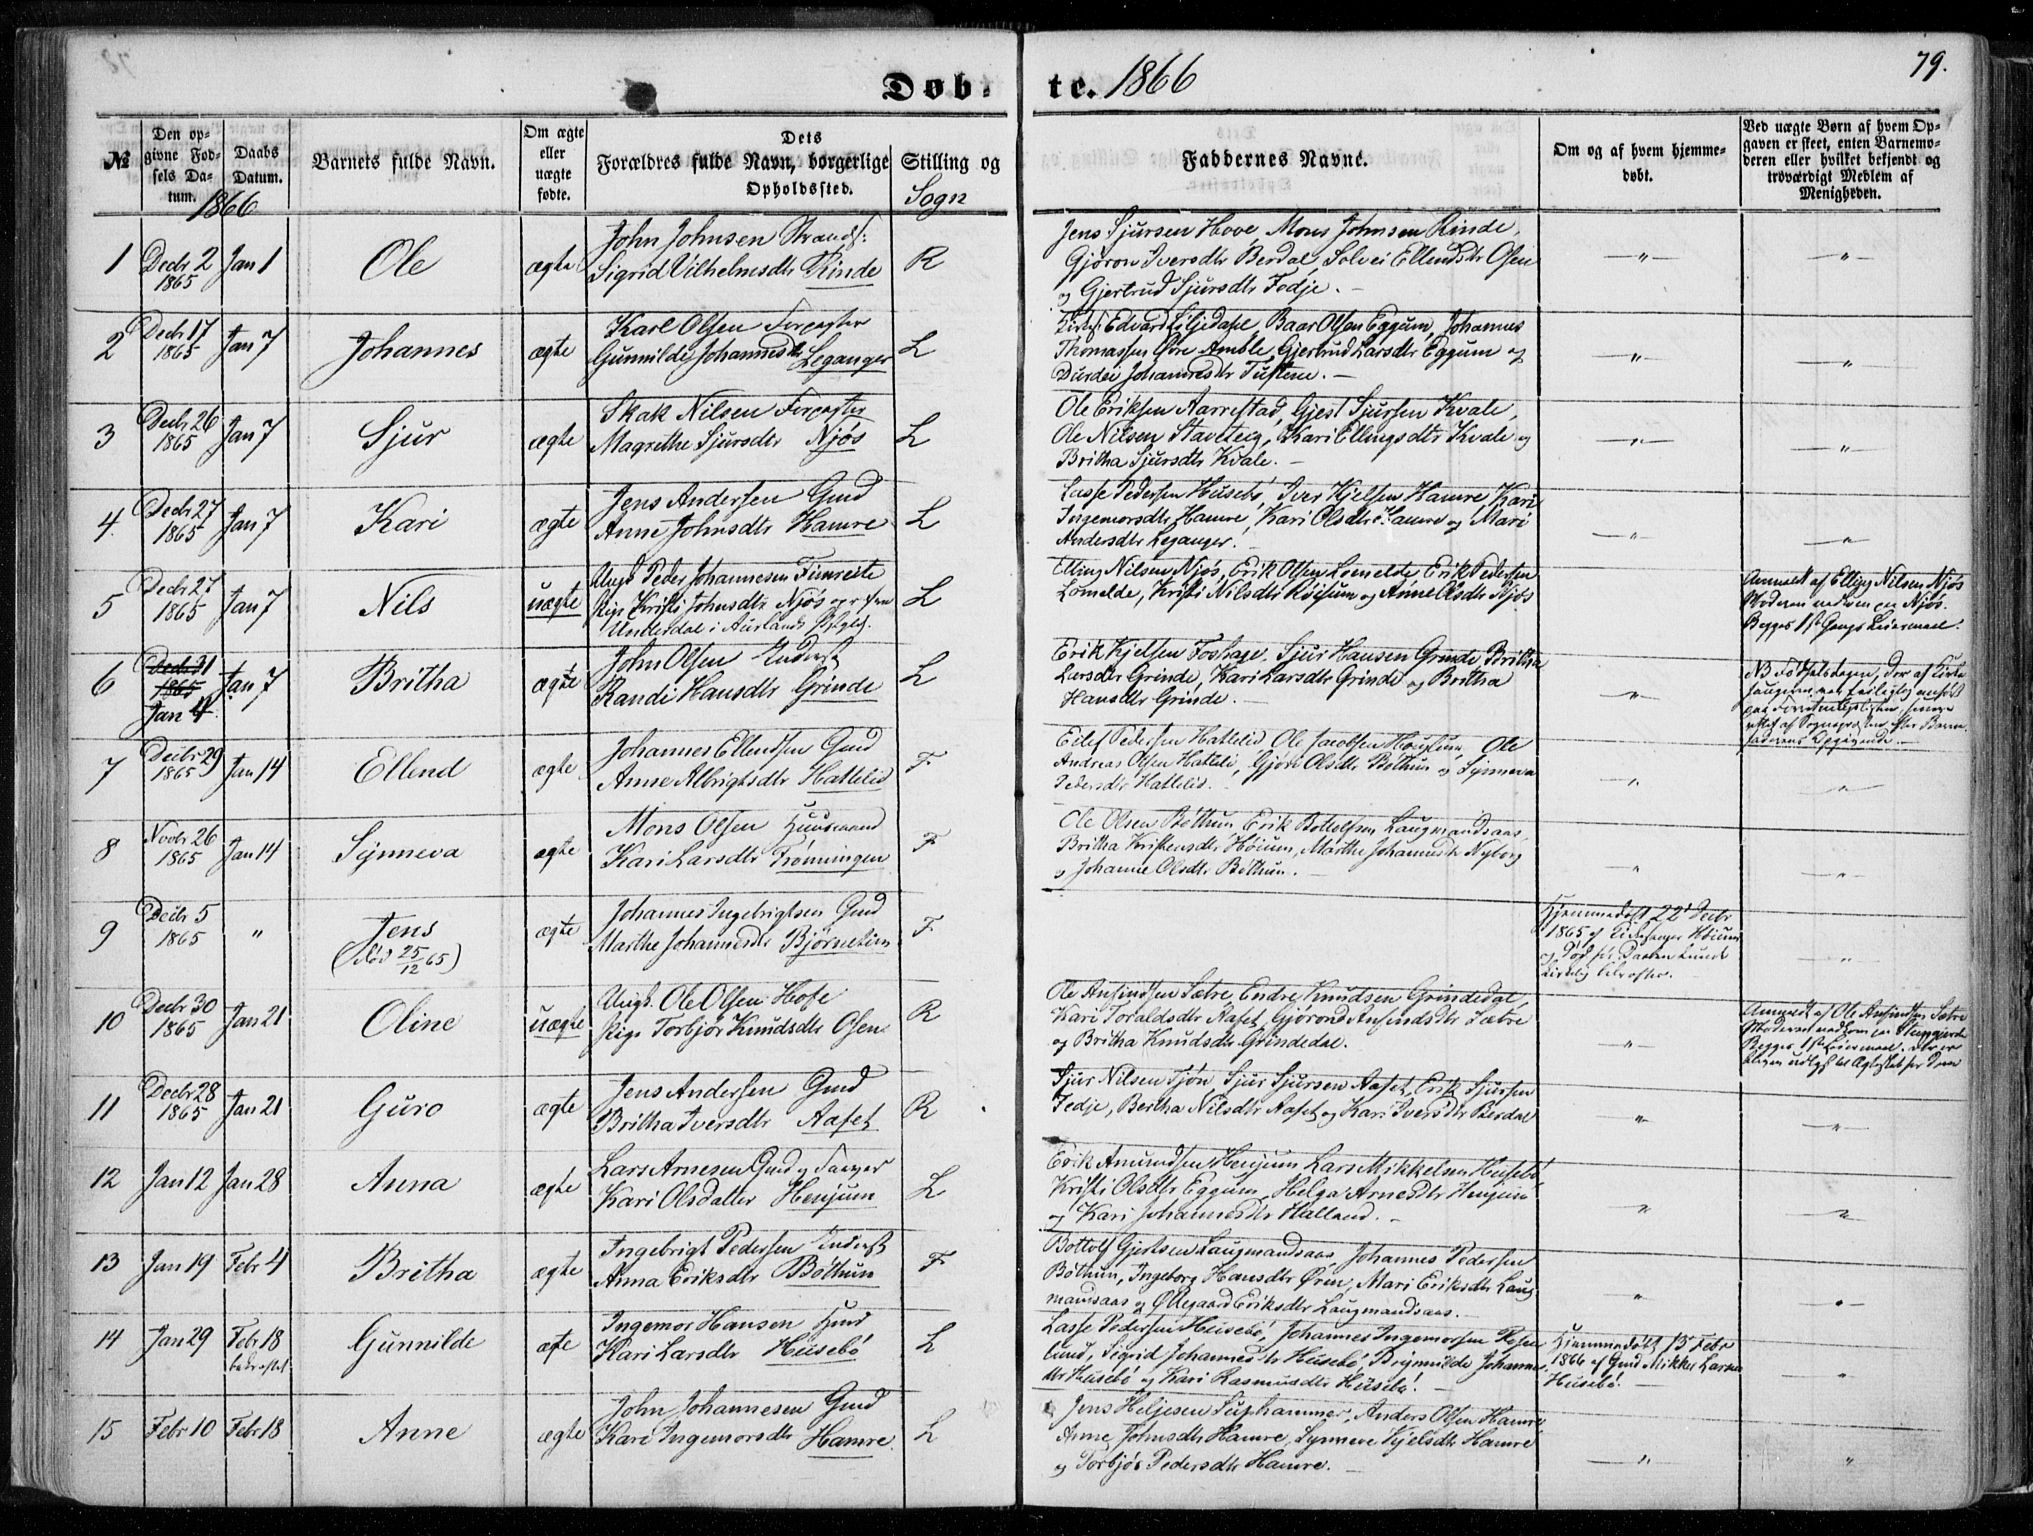 79.
Døb-te. 1866
№
Den opgivne Fødsels Datum.
Daabs Datum.
Barnets fulde Navn.
Om ægte eller uægte fødte.
Dets Forældres fulde Navn, borgerlige Stilling og Opholdssted.
Sogn
Faddernes Navne.
Om og af hvem hjemmedøbt.
Ved uægte Børn af hvem Opgaven er skeet, enten Barnemoderen eller hvilket bekjendt og troværdigt Medlem af Menigheden.
1866
1 Decbr 2 1865 Jan 1 Ole ægte John Johnsen Strands:
Sigrid Vilhelmsdtr Rinde R
Jens Sjursen Hove, Mons Johnsen Rinde,
Gjøron Iversdtr Berdal, Solvei Ellendsdtr Osen
og Gjertrud Sjursdtr Fedje. —
2 Decbr 17 1865 Jan 7 Johannes ægte Karl Olsen Forpagter
Gunnilde Johannesdtr Leganger L
Edvard Liljedahl, Baar Olsen Eggum, Johannes
Thomassen Øvre Amble, Gjertrud Larsdtr Eggum og
Durdei Johannesdtr Tuftene. —
3 Decbr 26 1865 Jan 7 Sjur ægte Skak Nilsen Forpagter
Magrethe Sjursdtr Njøs L
Ole Eriksen Aarrestad, Gjest Sjursen Kvale,
Ole Nilsen Staveteig, Kari Ellingsdtr Kvale og
Britha Sjursdtr Kvale. —
4. Decbr 27 1865 Jan 7 Kari ægte Jens Andersen Gmd
Anne Johnsdtr Hamre L
Lasse Pedersen Husebø, Iver Kjelsen Hamre, Kari
Ingemorsdtr Hamre, Kari Olsdtr Hamre og Mari
Andersdtr Leganger.
5 Decbr 27 1865 Jan 7 Nils uægte Ungk Peder Johannesen Fimreite
Pige Kristi Johnsdtr Njøs
Underdal i Aurlands Prgjld. L
Elling Nilsen Njøs, Erik Olsen Lomelde, Erik Pedersen
Lomelde, Kristi Nilsdtr Røisum og Anne Olsdtr Njøs
Anmeldt af Elling Nilsen Njøs
Moderen
Njøs.
Begges 1ste Gangs Leiermaal.
6 Decbr 31 1865 Jan 4 Jan 7 Britha ægte John Olsen Inderst
Randi Hansdtr Grinde L
Erik Kjelsen Foshage, Sjur Hansen Grinde, Britha
Larsdtr Grinde, Kari Larsdtr Grinde og Britha
Hansdtr Grinde. —
NB Fødselsdagen, der af Kirke-
sangeren var feilagtig anført
af Sognepræsten efter Barne-
faderens Opgivende. —
7 Decbr 29 1865 Jan 14 Ellend ægte Johannes Ellendsen Gmd
Anne Albrigtsdtr Hatlelid F
Eilef Pedersen Hatlelid, Ole Jacobsen, Ole
Andreas Olsen Hatleli, Gjøri Olsdtr Bøthun og Synneva
Pedersdtr Hatlelid.
8 Novbr 26 1865 Jan 14 Synneva ægte Mons Olsen Husmand
Kari Larsdtr Frønningen F
Ole Olsen Bøthun, Erik Bottolfsen Laugmandsaas,
Britha Kristensdtr Høium, Marthe Johannesdtr Nyborg
og Johanne Olsdtr Bøthun.
9 Decbr 5 1865 " Jens
(død 25/12 65) ægte Johannes Ingebrigtsen Gmd
Marthe Johannesdtr Bjørnetun F
Hjemmedøbt 22' Decbr
1865 af Kirkesanger Høium
og død før Daaben kunde
kirkelig bekræftes.
10 Decbr 30 1865 Jan 21 Oline uægte Ungk. Ole Olsen Hofe
Pige Torbjør Knudsdtr Osen R
Ole Ansindsen Sætre, Endre Knudsen Grindedal,
Kari Toraldsdtr Aafet, Gjørond Ansindsdtr Sætre
og Britha Knudsdtr Grindedal.
Anmeldt af Ole Ansindsen Sætre
Begges 1ste Leiermaal.
11 Decbr 28 1865 Jan 21 Guro ægte Jens Andersen Gmd
Britha Iversdtr Aafet R
Sjur Nilsen Tjøn, Sjur Sjursen Aafet, Erik Sjursen
Fedje, Bertha Nilsdtr Aafet og Kari Iversdtr Berdal
12 Jan 12 Jan 28 Anna ægte Lars Arnesen Gmd og
Kari Olsdatter Henjum L
Erik Amundsen Henjum, Lars Mikkelsen Husebø,
Kristi Olsdtr Eggum, Helga Arnesdtr Henjum
og Kari Johannesdtr Halland. —
13 Jan 19 Febr 4 Britha ægte Ingebrigt Pedersen Inderst
Anna Eriksdtr Bøthun F
Bottolf Gjertsen Laugmandsaas, Johannes Pedersen
Bøthun, Ingeborg Hansdtr Øren, Mari Eriksdtr Laug-
mandsaas og Ollegaard Eriksdtr Laugmandsaas.
14 Jan 29 Febr 18 bekræftet Gunnilde ægte Ingemor Hansen Hmd
Kari Larsdtr Husebø L
Lasse Pedersen Husebø, Johannes Ingemorsen Rosen-
lund, Sigrid Johannesdtr Husebø, Brynnilde Johannes-
dtr Husebø og Kari Rasmusdtr Husebø.
Hjemmedøbt 13' Febr
1866 af Gmd Mikkel Larsen
Husebø.
15 Febr 10 Febr 18 Anne ægte John Johannesen Gmd
Kari Ingemorsdtr Hamre. L
Jens Heljesen Suphammer, Anders Olsen Hamre
Anne Johnsdtr Hamre, Synneve Kjelsdtr Hamre
og Torbjør Pedersdtr Hamre. —